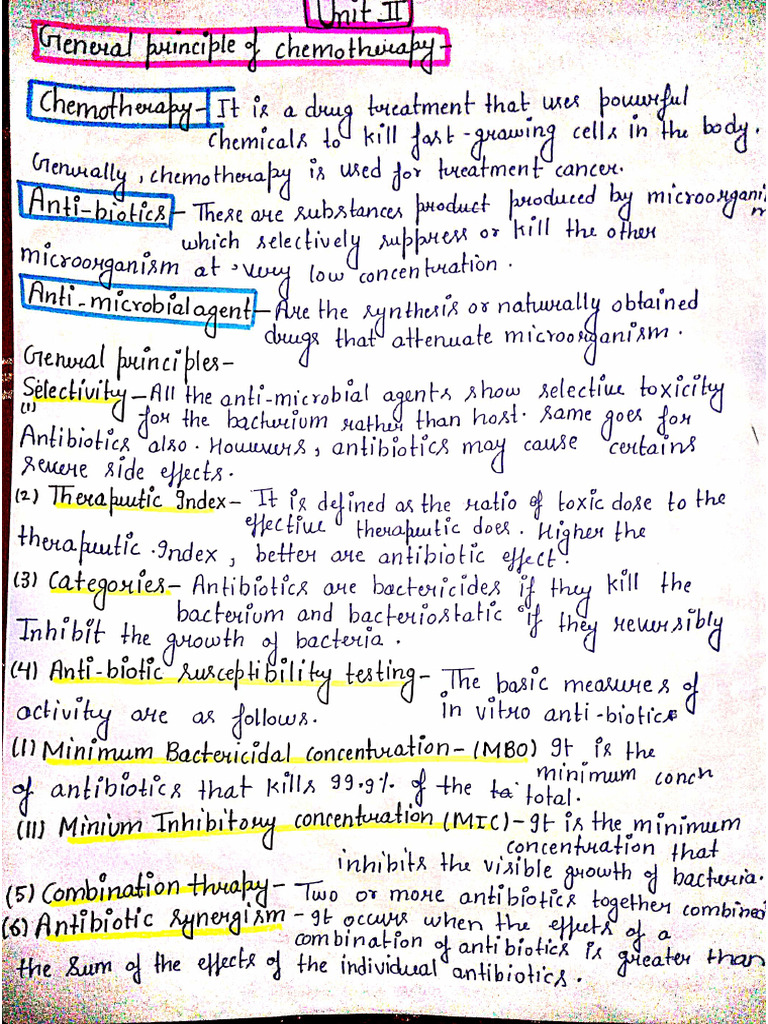 Unit-II
General principle of chemotherapy-
Chemotherapy- It is a drug treatment that uses powerful
chemicals to kill fast-growing cells in the body.
Generally, chemotherapy is used for treatment cancer.
Anti-biotics- These are substances product produced by microorgani
m
which selectively suppress or kill the other
microorganism at very low concentration.
Anti-microbial agent- Are the synthesis or naturally obtained
drugs that attenuate microorganism.
General principles-
Selectivity- All the anti-microbial agents show selective toxicity
(1) for the bacterium rather than host. same goes for
Antibiotics also. Howevers, antibiotics may cause certains
severe side effects.
(2) Therapeutic Index- It is defined as the ratio of toxic dose to the
effective therapeutic does. Higher the
therapeutic Index, better are antibiotic effect.
(3) Categories- Antibiotics are bactericides if they kill the
bacterium and bacteriostatic if they reversibly
Inhibit the growth of bacteria.
(4) Anti-biotic susceptibility testing- The basic measures of
in vitro anti-biotics
activity are as follows.
(I) Minimum Bactericidal concentration- (MBO) It is the
minimum concn
of antibiotics that kills 99.9% of the total.
(II) Minium Inhibitory concentration (MIC)- It is the minimum
concentration that
inhibits the visible growth of bacteria.
(5) Combination thrapy- Two or more antibiotics together combined
(6) Antibiotic synergism- It occurs when the effects of a
combination of antibiotics is greater than
the sum of the effects of the individual antibiotics.